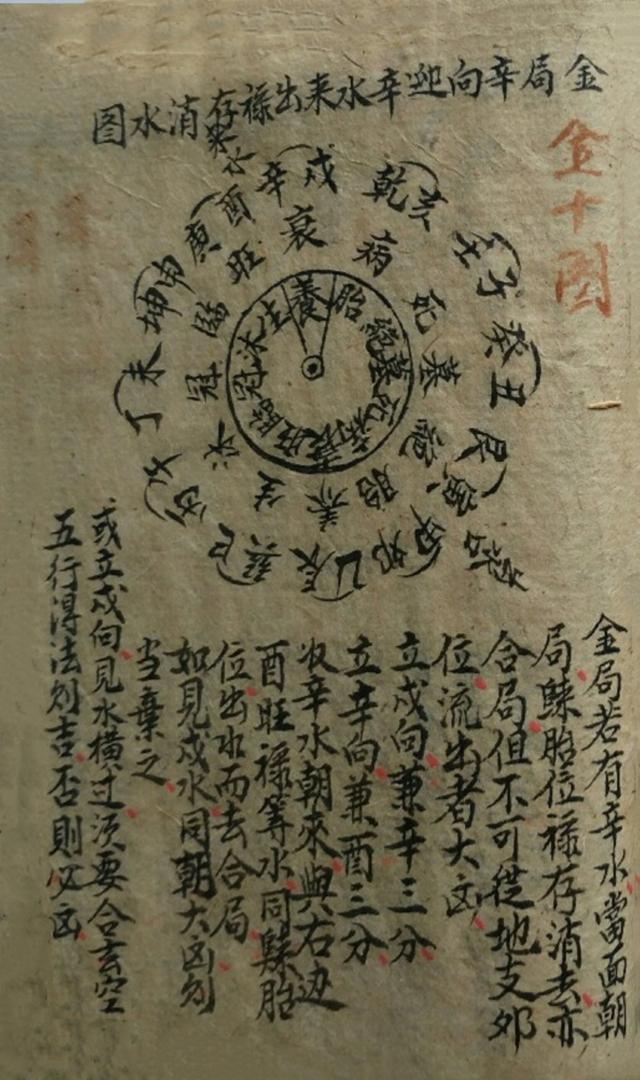 金局辛向迎辛水来出祿存消水图
金十圖
来水
辛戌
乾亥
壬子
癸丑
艮寅
甲卯
乙辰
巽巳
丙午
丁未
坤申
庚酉
衰病死墓絕胎养生沐冠臨旺
養胎絕墓死病衰旺臨冠沐生
金局若有辛水當面朝
局繇胎位祿存消去亦
合局但不可從地支卯
位流出者大凶
立戍向兼辛三分
立辛向兼酉三分
收辛水朝來與右边
酉旺祿等水同繇胎
位出水而去合局
如見戍水同朝大凶勿
当棄之
或立戍向見水橫过须要合玄空
五行得法则吉否則必凶